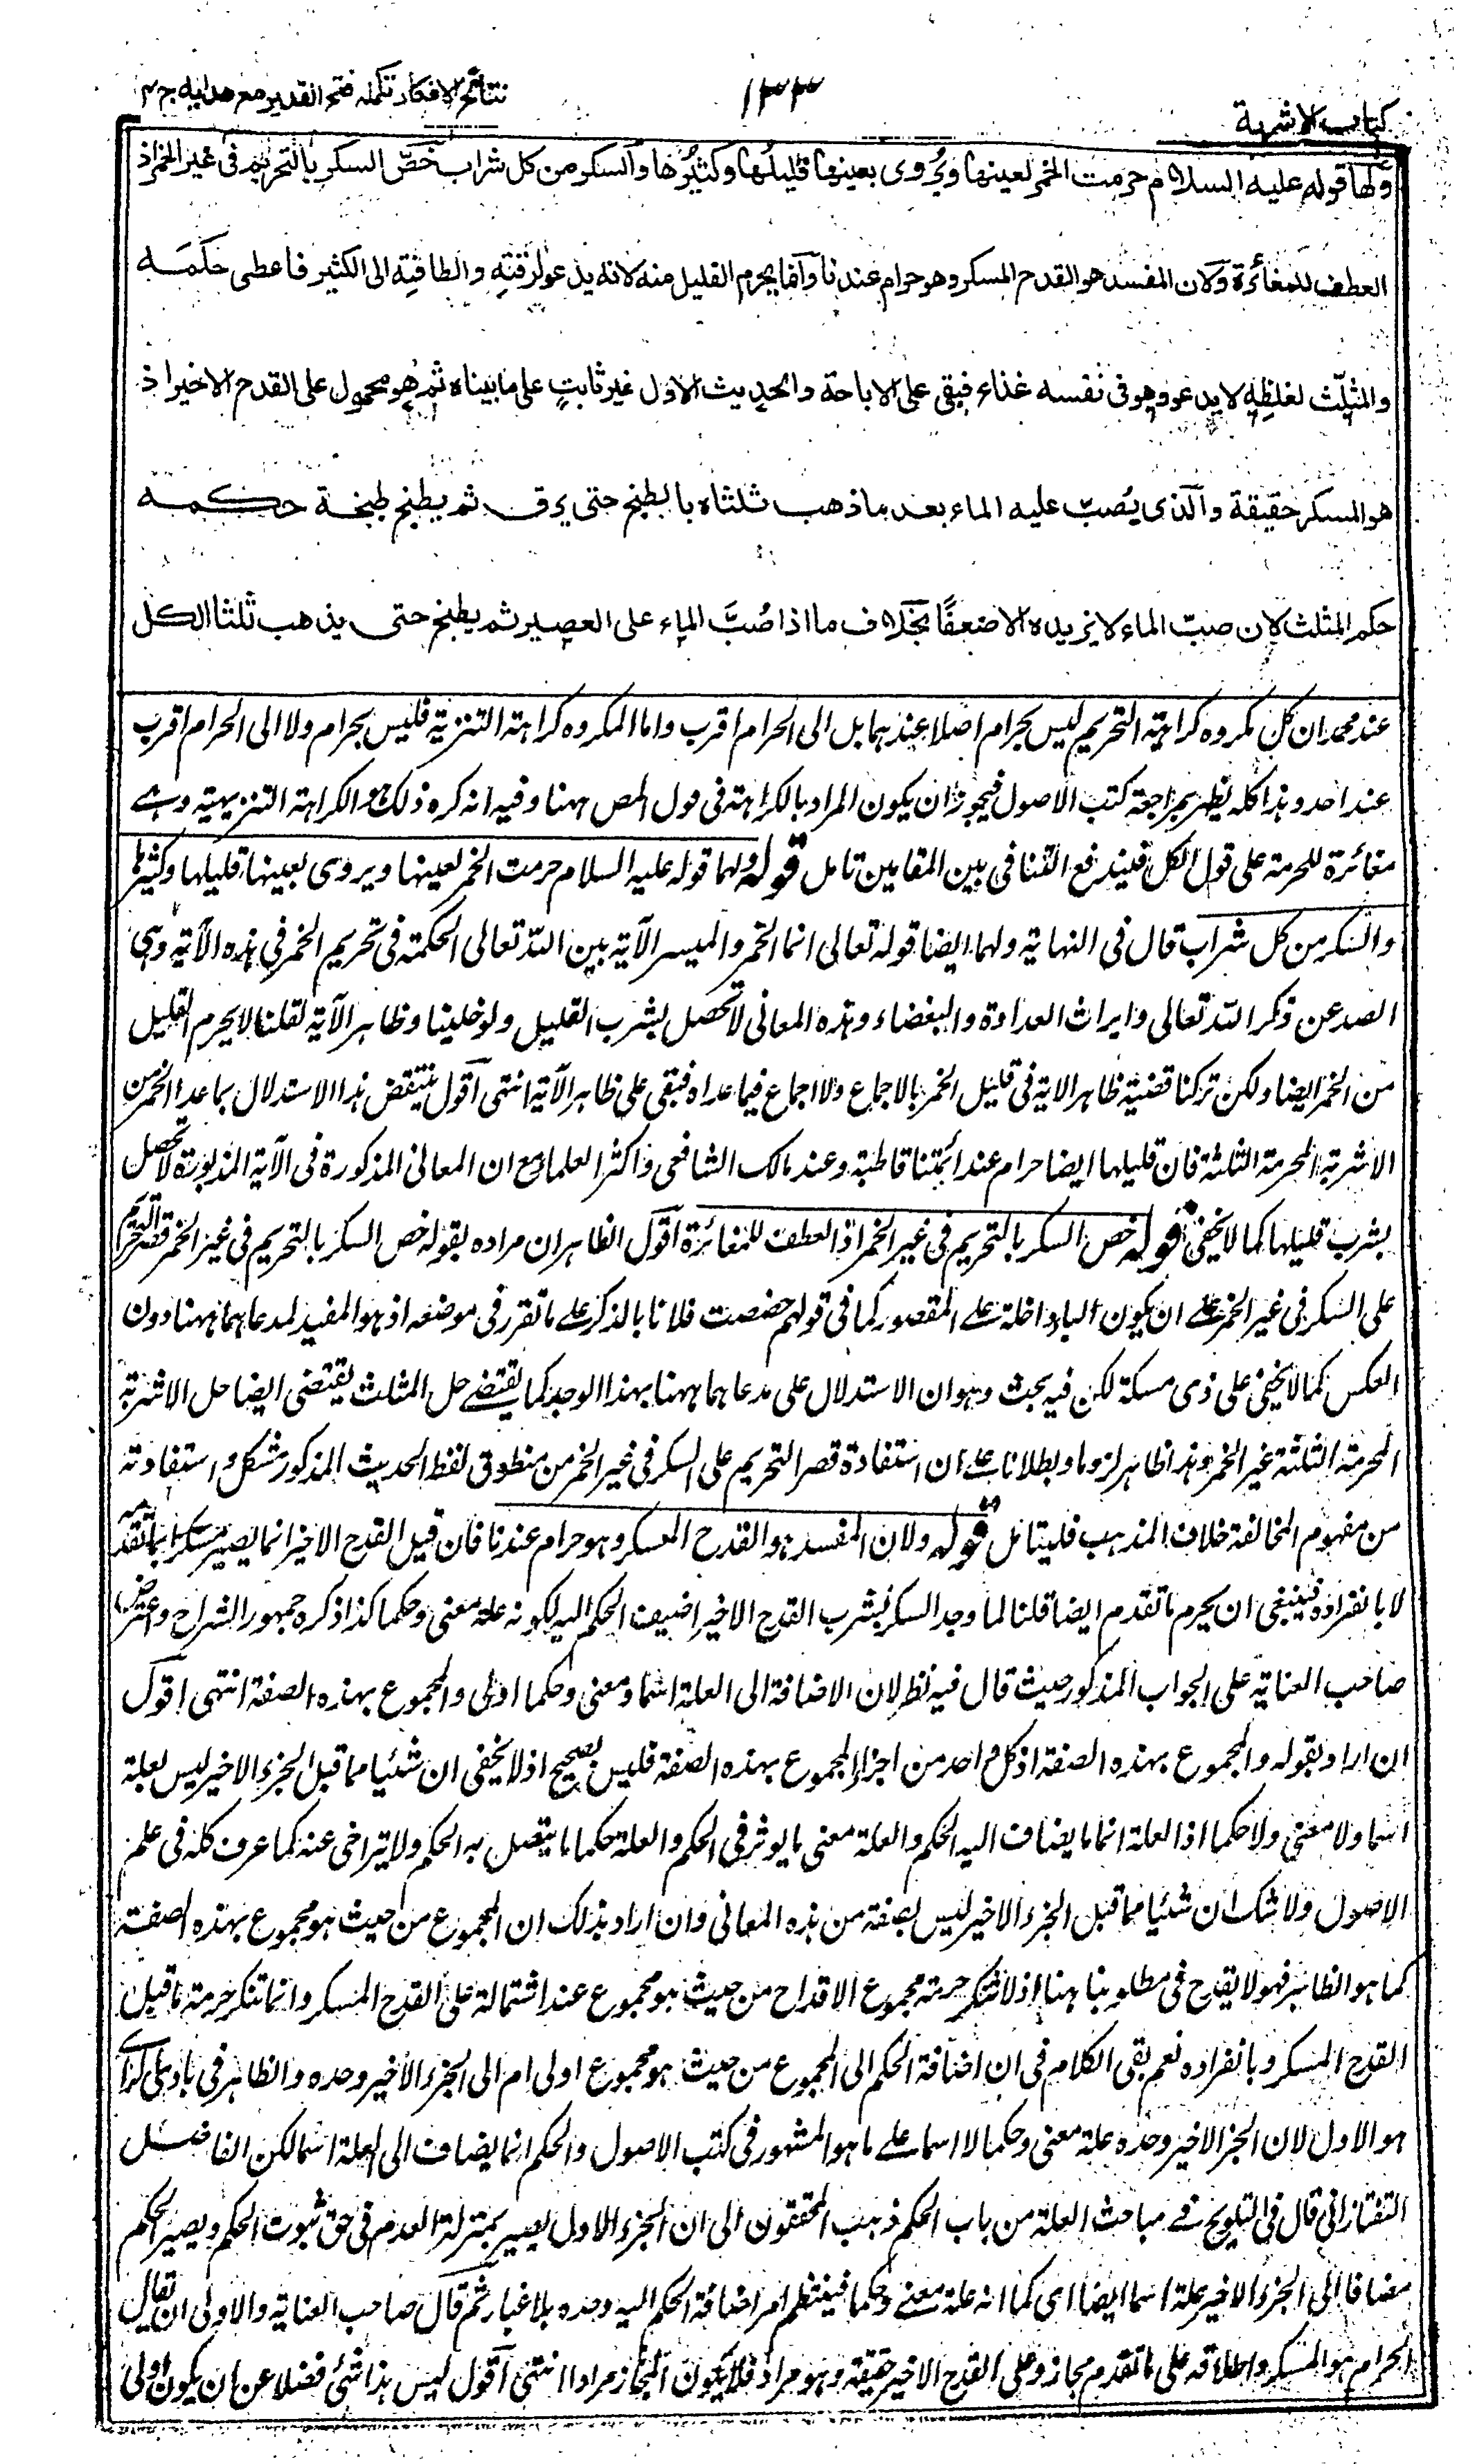 كتاب الاشربة
١٣٣
نتائج الافكار تكمله فتح القدير مع هدايه ج ٣
ولهما قوله عليه السلام حرمت الخمر لعينها ويُروى بعينها قليلُها وكثيرُها والسكر من كل شراب خَصّ السكر بالتحريم فى غير الخمر اذ
العطف للمغائرة ولان المفسد هو القدح المسكر وهو حرام عندنا وانما يحرم القليل منه لانه يدعو لرقتِهِ ولطافتِهِ الى الكثير فاعطى حكمَه
والمثلّث لغلظِهِ لا يدعو وهو فى نفسه غذاء فبقى على الاباحة والحديث الاول غير ثابتٍ على ما بيناه ثم هو محمول على القدح الاخير اذ
هو المسكر حقيقة والذى يُصبّ عليه الماء بعد ما ذهب ثلثاه بالطبخ حتى يرق ثم يطبخ طبخة حكمه
حكم المثلث لان صبّ الماء لا يزيده الا ضعفًا بخلاف ما اذا صُبَّ الماء على العصير ثم يطبخ حتى يذهب ثلثا الكل
عند محمد ان كل مكروه كراهة التحريم ليس بحرام اصلا عندهما بل الى الحرام اقرب واما المكروه كراهة التنزية فليس بحرام ولا الى الحرام اقرب
عند احد وهذا كله يظهر بمراجعة كتب الاصول فيجوز ان يكون المراد بالكراهة فى قول المص ههنا وفيه انه كره ذلك هو الكراهة التنزيهية وهے
مغائرة للحرمة على قول الكل فليندفع التنافى بين المقامين تامل قوله ولهما قوله عليه السلام حرمت الخمر لعينها ويروى بعينها قليلها وكثيرها
والسكر من كل شراب قال فى النهاية ولهما ايضا قوله تعالى انما الخمر والميسر الآية بين الله تعالى الحكمة فى تحريم الخمر فى هذه الآية وهى
الصد عن ذكر الله تعالى وايراث العداوة والبغضاء وهذه المعانى لا تحصل بشرب القليل ولو خلينا وظاهر الآية لقلنا لا يحرم القليل
من الخمر ايضا ولكن تركنا قضية ظاهر الاية فى قليل الخمر بالاجماع ولا اجماع فيما عداه فبقى على ظاهر الآية انتهى اقول ينتقض هذا الاستدلال بما عدا الخمر من
الاشربة المحرمة الثلثة فان قليلها ايضا حرام عند ائمتنا قاطبة وعند مالك الشافعى واكثر العلماء مع ان المعانى المذكورة فى الآية المذبورة لا تحصل
بشرب قليلها كما لا يخفى قوله خص السكر بالتحريم فى غير الخمر اذ العطف للمغائرة اقول الظاهر ان مراده بقوله خص السكر بالتحريم فى غير الخمر قصر التحريم
على السكر فى غير الخمر علے ان يكون الباء داخلة علے المقصور كما فى قولهم خصصت فلانا بالذكر علے ما تقرر فى موضعه اذ هو المفيد لمدعاهما ههنا دون
العكس كما لا يخفى على ذى مسكة لكن فيه بحث وهو ان الاستدلال على مدعاهما ههنا بهذا الوجه كما يقتضے حل المثلث يقتضى ايضا حل الاشربة
المحرمة الثلثة غير الخمر وهذا ظاهر لزوما وبطلانا علے ان استفادة قصر التحريم على السكر فى غير الخمر من منطوق لفظ الحديث المذكور مشكل واستفادته
من مفهوم المخالفة خلاف المذهب فليتامل قوله ولان المفسد هو القدح المسكر وهو حرام عندنا فان قيل القدح الاخير انما يصير مسكرا بما تقدمه
لا بانفراده فينبغى ان يحرم ما تقدم ايضا قلنا لما وجد السكر بشرب القدح الاخير اضيف الحكم اليه لكونه علة معنى وحكما كذا ذكره جمهور الشراح واعترض
صاحب العناية على الجواب المذكور حيث قال فيه نظر لان الاضافة الى العلة اسما ومعنى وحكما اولى والمجموع بهذه الصفة انتهى اقول
ان اراد بقوله والمجموع بهذه الصفة ان كل واحد من اجزاء المجموع بهذه الصفة فليس بصحيح اذ لا يخفى ان شيئا مما قبل الجزء الاخير ليس لعلة
اسما ولا معنى ولا حكما اذ العلة انما ما يضاف اليه الحكم والعلة معنى ما يوثر فى الحكم والعلة حكما ما يتصل به الحكم ولا يتراخى عنه كما عرف كله فى علم
الاصول ولا شك ان شيئا مما قبل الجزء الاخير ليس بصفة من هذه المعانى وان اراد بذلك ان المجموع من حيث هو مجموع بهذه الصفة
كما هو الظاهر فهو لا يقدح فى مطلوبنا ههنا اذ لا ننكر حرمة مجموع الاقداح من حيث هو مجموع عند اشتماله على القدح المسكر وانما ننكر حرمة ما قبل
القدح المسكر وبانفراده نعم بقى الكلام فى ان اضافة الحكم الى المجموع من حيث هو مجموع اولى ام الى الجزء الاخير وحده والظاهر فى بادى الراے
هو الاول لان الجزء الاخير وحده علة معنى وحكما لا اسما علے ما هو المشهور فى كتب الاصول والحكم انما يضاف الى العلة اسما لكن الفاضل
التفتازانى قال فى التلويح فے مباحث العلة من باب الحكم ذهب المحققون الى ان الجزء الاول يصير بمنزلة العدم فى حق ثبوت الحكم ويصير الحكم
مضافا الى الجزء الاخير علة اسما ايضا اى كما انه علة معنے وحكما فينتظم امر اضافة الحكم اليه وحده بلا غبار ثم قال صاحب العناية والاولى ان يقال
الحرام هو المسكر واطلاقه على ما تقدم مجاز وعلى القدح الاخير حقيقة وهو مراد فلا يكون المجاز مرادا انتهى اقول ليس هذا شئ فضلا عن ان يكون اولى